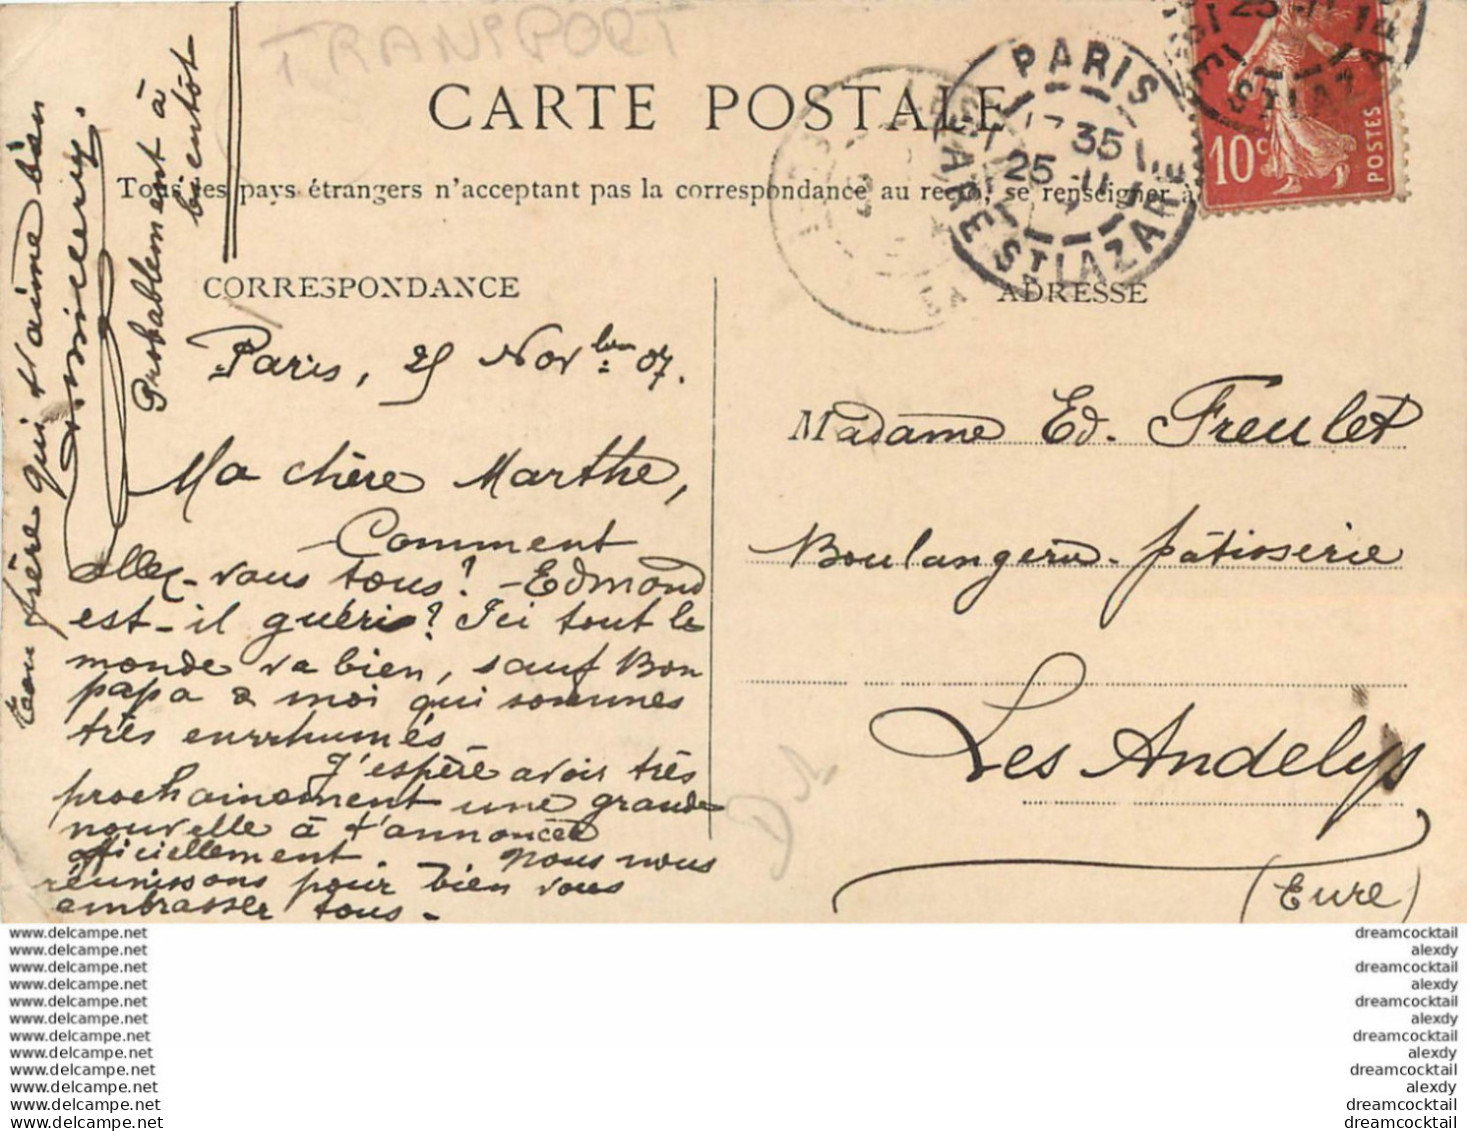 TRANSPORT
CARTE POSTALE
Tous les pays étrangers n'acceptant pas la correspondance au recto, se renseigner à
PARIS
17 35
25 -11
GARE ST LAZARE
25 -11
ST LAZA
10c
POSTES
CORRESPONDANCE
ADRESSE
Paris, 25 Novbre 07.
Ma chère Marthe,
Comment
allez-vous tous? - Edmond
est-il guéri? Ici tout le
monde va bien, sauf Bon
papa & moi qui sommes
très enrrhumés
J'espère avoir très
prochainement une grande
nouvelle à t'annoncer
officiellement. Nous nous
réunissons pour bien vous
embrasser tous -
Ton frère qui t'aime bien
Probablement à
bientôt
Madame Ed. Freulet
Boulangerie-pâtisserie
Les Andelys
(Eure)
www.delcampe.net
www.delcampe.net
www.delcampe.net
www.delcampe.net
www.delcampe.net
www.delcampe.net
www.delcampe.net
www.delcampe.net
www.delcampe.net
www.delcampe.net
www.delcampe.net
www.delcampe.net
dreamcocktail
alexdy
dreamcocktail
alexdy
dreamcocktail
alexdy
dreamcocktail
alexdy
dreamcocktail
alexdy
dreamcocktail
dreamcocktail